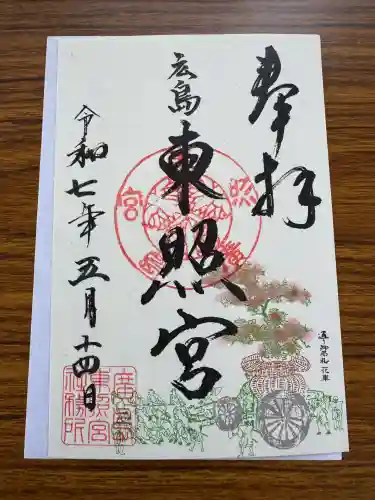 奉拝
広島
東照宮
令和七年五月十四日
通り御祭礼 花車
廣島
東照宮
社務所